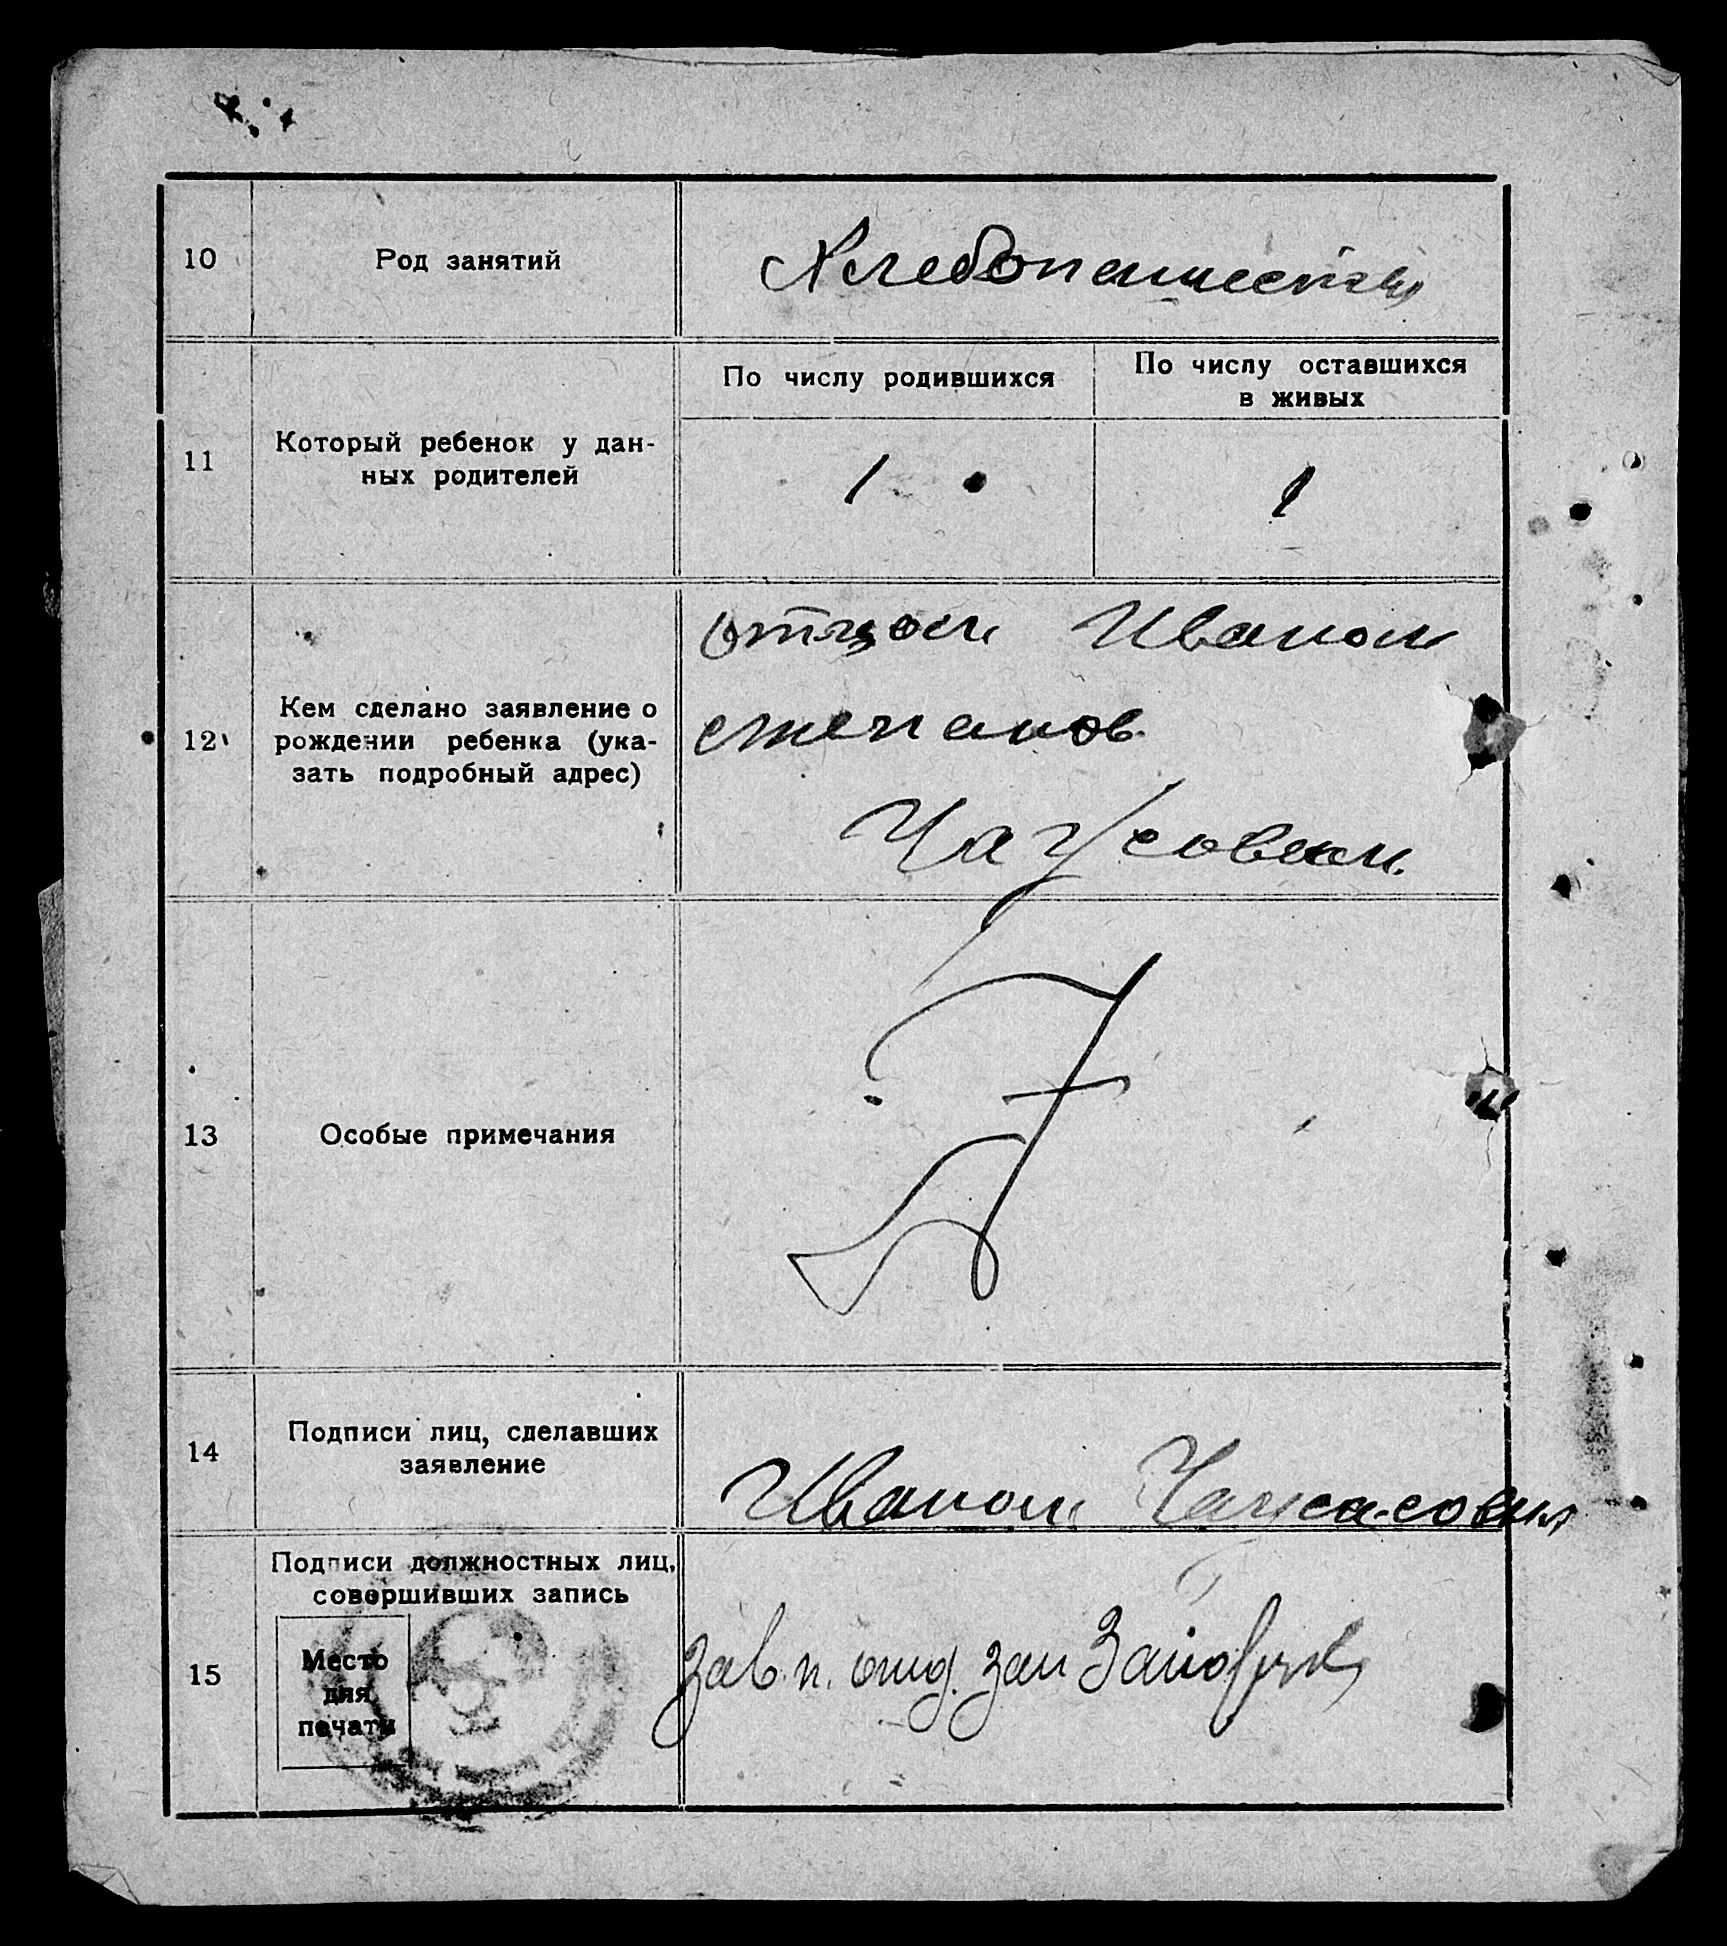 10
Род занятий
Хлебопашество
11
Который ребенок у дан-
ных родителей
По числу родившихся
По числу оставшихся
в живых
1
1
12
Кем сделано заявление о
рождении ребенка (ука-
зать подробный адрес)
отцом Иваном
степанов.
Чаусовым.
13
Особые примечания
14
Подписи лиц, сделавших
заявление
Иваном
15
Подписи должностных лиц,
совершивших запись
Место
для
печати
Зав. п. отд. зап